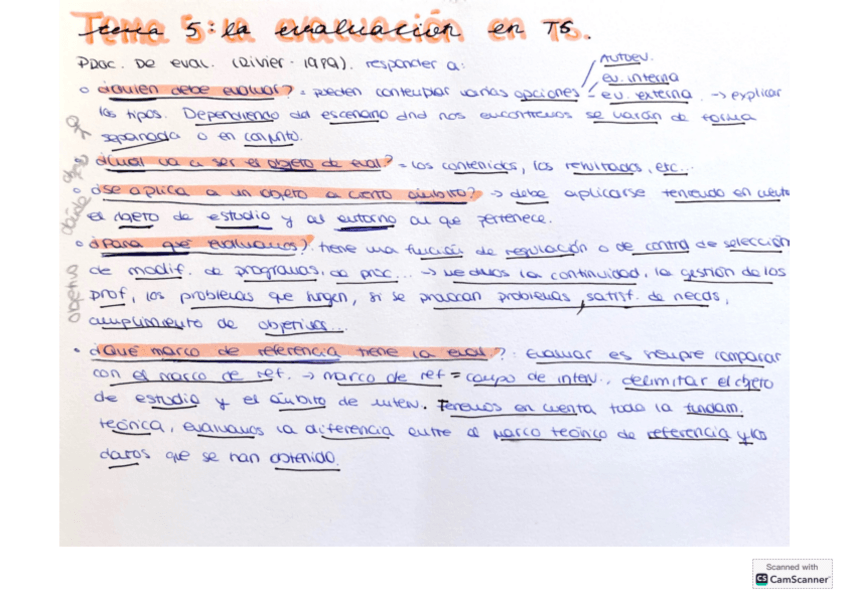 Tema 5: la evaluación en TS.
Proc. De eval. (Rivier. 1989). responder a:
Autoev.
ev. interna
ev. externa
○ ¿quien debe evaluar? = pueden contemplar varias opciones → explicar
los tipos. Dependiendo del escenario dnd nos encontremos se varán de forma
separada o en conjunto.
○ ¿cual va a ser el objeto de eval? = los contenidos, los resultados, etc...
○ ¿se aplica a un objeto a cierto ámbito? → debe aplicarse teniendo en cuenta
el objeto de estudio y al entorno al que pertenece.
○ ¿para que evaluamos?: tiene una función de regulación o de control de selección
de modif. de programas, de proc... → vemos la continuidad, la gestión de los
prof, los problemas que surgen, si se producen problemas, satisf. de necs,
cumplimiento de objetivos...
• ¿Qué marco de referencia tiene la eval.?: Evaluar es siempre comparar
con el marco de ref. → marco de ref = campo de interv., delimitar el objeto
de estudio y el ámbito de interv. Tenemos en cuenta toda la fundam.
teórica, evaluamos la diferencia entre el marco teórico de referencia y los
datos que se han obtenido.
objetivo desde
Scanned with
CS CamScanner